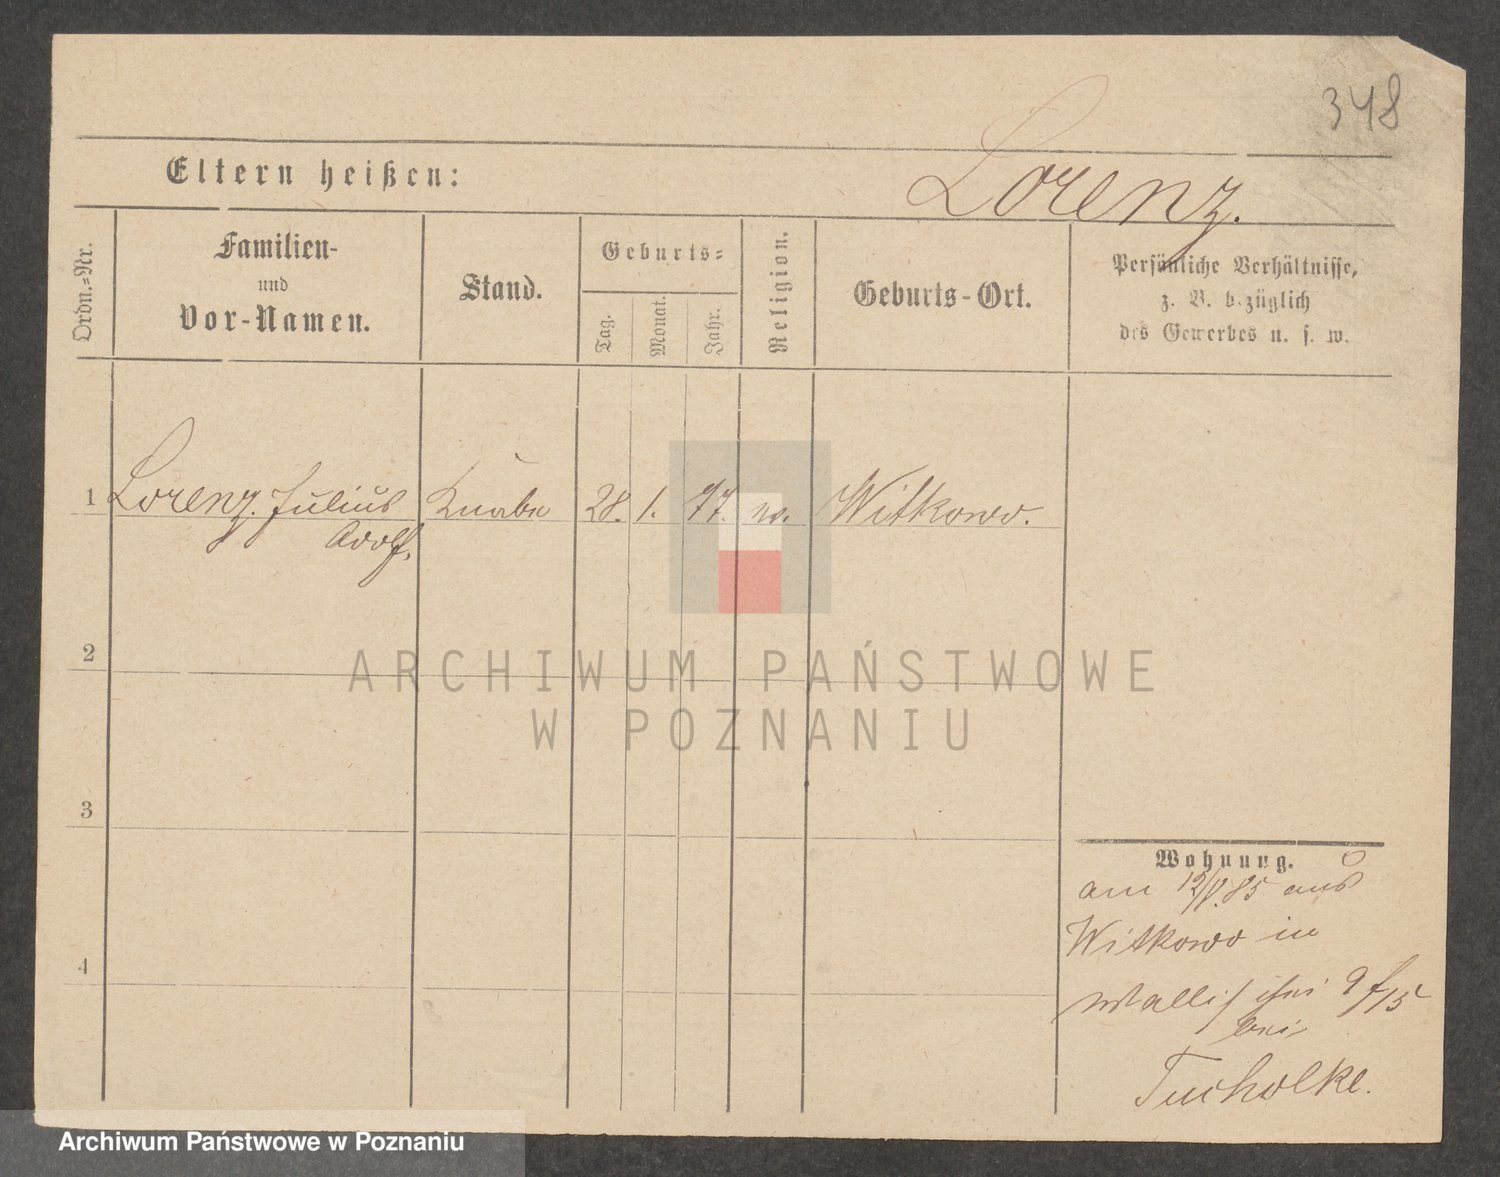 348
Eltern heißen: Lorenz.
Ordn.-Nr.
Familien-
und
Vor-Namen.
Stand.
Geburts-
Tag.
Monat.
Jahr.
Religion.
Geburts-Ort.
Persönliche Verhältnisse,
z. B. bezüglich
des Gewerbes u. s. w.
1 Lorenz. Julius Knabe 28. 1. 77. ev. Witkowo.
Adolf.
2
ARCHIWUM PAŃSTWOWE
W POZNANIU
3
4
Wohnung.
am 85 aus
Witkowo in
Wallischei 9 f/15
bei
Tucholke.
Archiwum Państwowe w Poznaniu